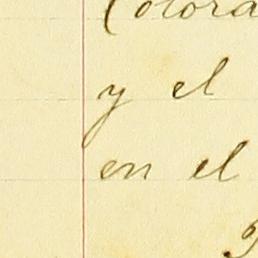 Colora
y el
en el